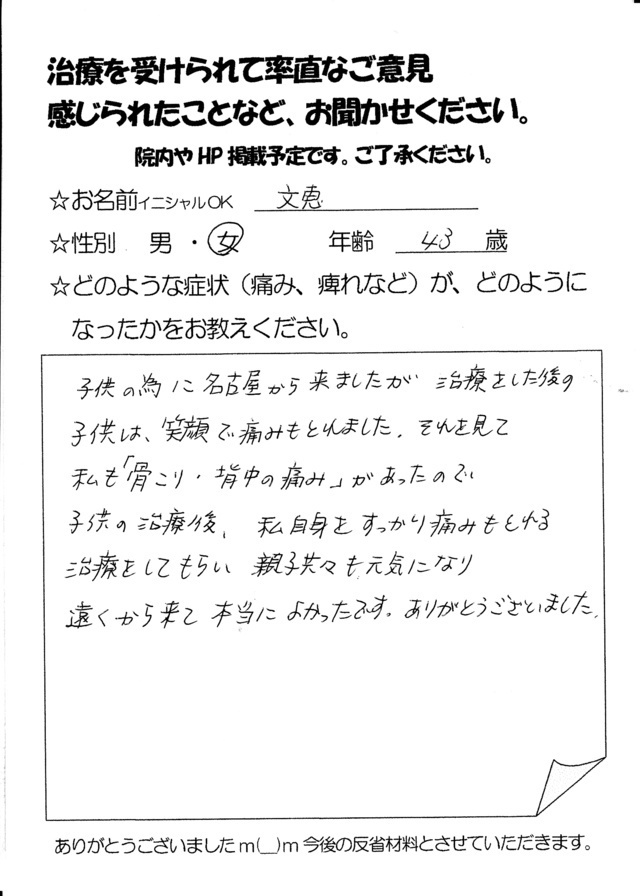 治療を受けられて率直なご意見
感じられたことなど、お聞かせください。
院内やHP掲載予定です。ご了承ください。
☆お名前イニシャルOK 文恵
☆性別 男・女 年齢 43 歳
☆どのような症状（痛み、痺れなど）が、どのように
なったかをお教えください。
子供の為に名古屋から来ましたが 治療をした後の
子供は、笑顔で痛みもとれました。それを見て
私も「骨こり・背中の痛み」があったので
子供の治療後、私自身をすっかり痛みもとれる
治療をしてもらい 親子共々も元気になり
遠くから来て 本当によかったです。ありがとうございました。
ありがとうございましたm(__)m今後の反省材料とさせていただきます。